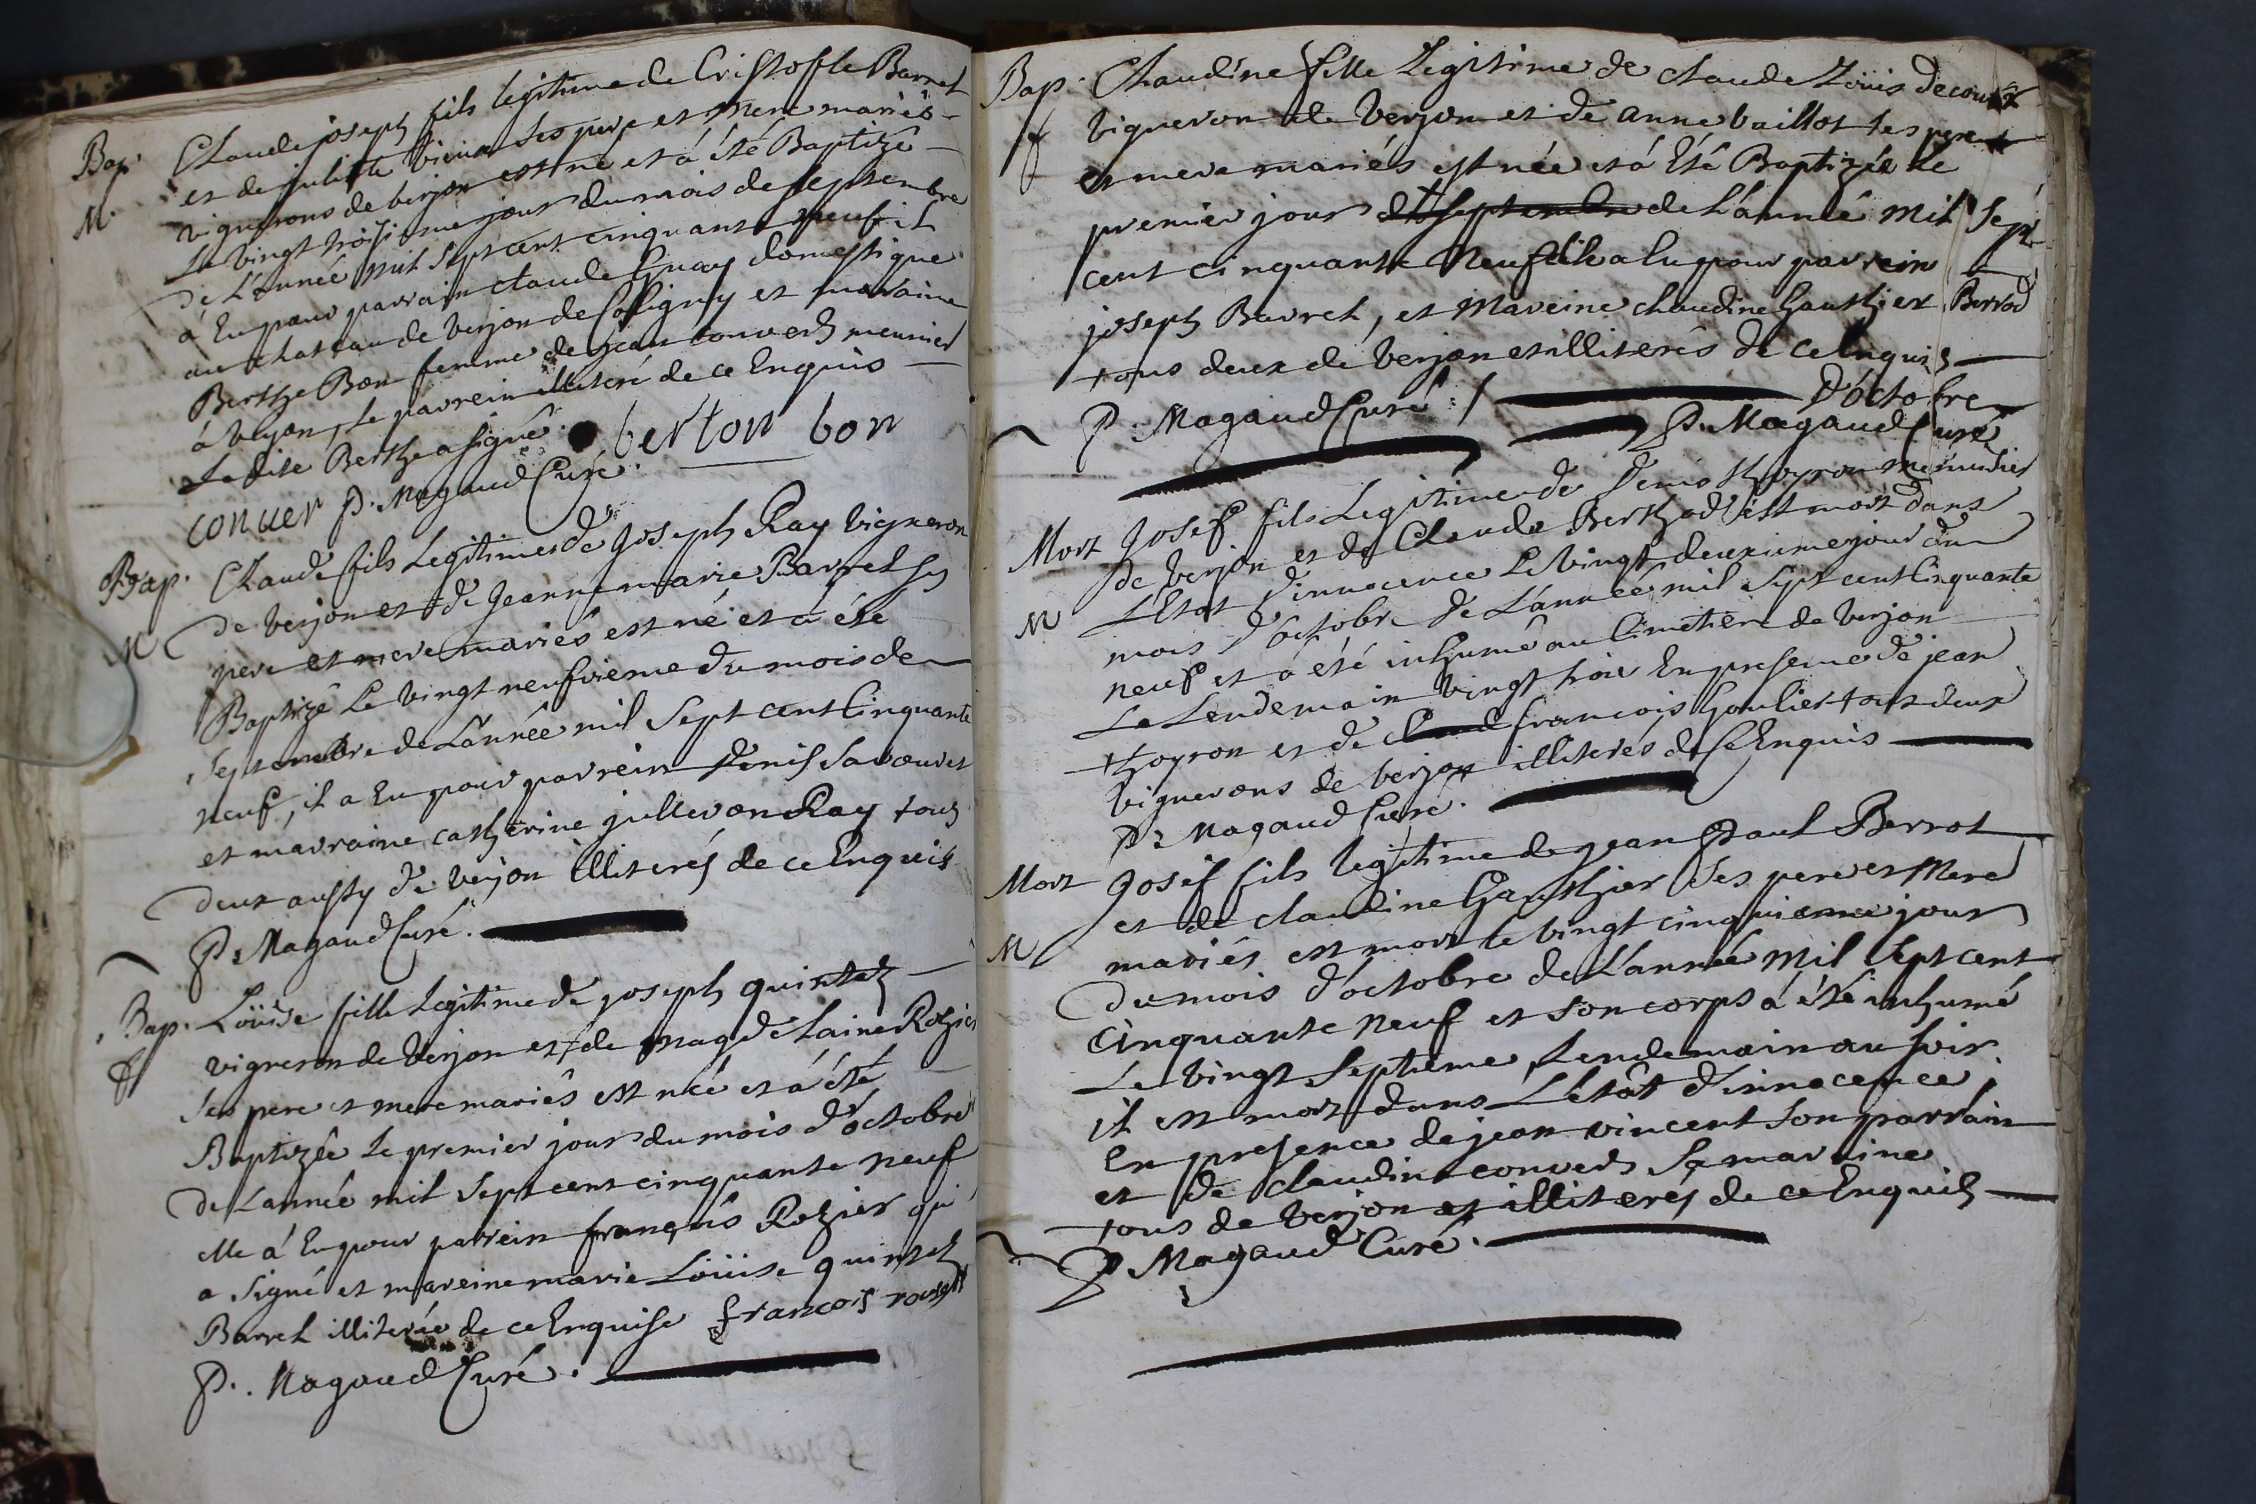 Bap. Claude joseph fils legitime de Cristofle Barret
M. et de juliste ses pere et mere mariés
vignerons de verjon est né et á été Baptizé
Le vingt troisieme jour du mois de septembre
de L'année mil sept cent cinquante neuf il
á Eu pour parrain claude Guay domestique
au chateau de verjon de Colligny et maraine
Berthe Bon femme de jean convers meunier
á verjon, Le parrein illiteré de ce Enquis
Ladite Berthe a signé. berton bon
conuer P. Magaud Curé.
Bap. Claude fils Legitime de joseph Ray vigneron
M de verjon et de jeanne marie Barret ses
pere et mere mariés est né et á été
Baptizé Le vingt neufvieme du mois de
septembre de L'année mil sept cent Cinquante
neuf, il a Eu pour parrein denis
et marraine catherine julleron Ray tous
deux aussy de verjon illiterés de ce Enquis
P. Magaud Curé.
Bap. Loüise fille legitime de joseph quintal
f vigneron de verjon et de magdelaine Rozier
ses pere et mere mariés est née et á été
Baptizée Le premier jour du mois d'octobre
de L'année mil sept cent cinquante neuf
elle á Eu pour parrein françois Rozier qui
a signé et mareine marie Loüise quintal
Barret illiterée de ce Enquise francois
P. Magaud Curé.
Bap. Claudine fille Legitime de claude Loüis
f vigneron de verjon et de anne vaillot ses pere
et mere mariés est née et á Eté Baptizée Le
premier jour de septembre de L'année mil sept
cent cinquante neuf elle a Eu pour parrein
joseph Barret, et Mareine claudine Gauthier Berrod
tous deux de verjon et illiterés de ce Enquis
P. Magaud Curé. / d'octobre
P. Magaud Curé
Mort Josef fils Legitime de denis thoyron menusier
de verjon et de Claude Berthod est mort dans
M L'Etat d'innocence Le vingt deuxieme jour du
mois d'octobre de L'année mil sept cent Cinquante
neuf et á été inhumé au Cimetiere de verjon
Le Lendemain vingt trois En presence de jean
thoyron et de claude francois Goulier tous deux
vignerons de verjon illiterés de ce Enquis
P. Magaud Curé.
Mort Josef fils legitime de jean Paul Berrot
et de claudine Gauthier ses pere et Mere
M mariés est mort le vingt cinquieme jour
du mois d'octobre de L'année mil sept cent
Cinquante neuf et son corps á été inhumé
Le vingt septieme, Lendemain au soir.
il est mort dans L'etat d'innocence,
En presence de jean vincent son parrain
et de claudine convers sa marreine
tous de verjon et illiterés de ce Enquis
P. Magaud Curé.